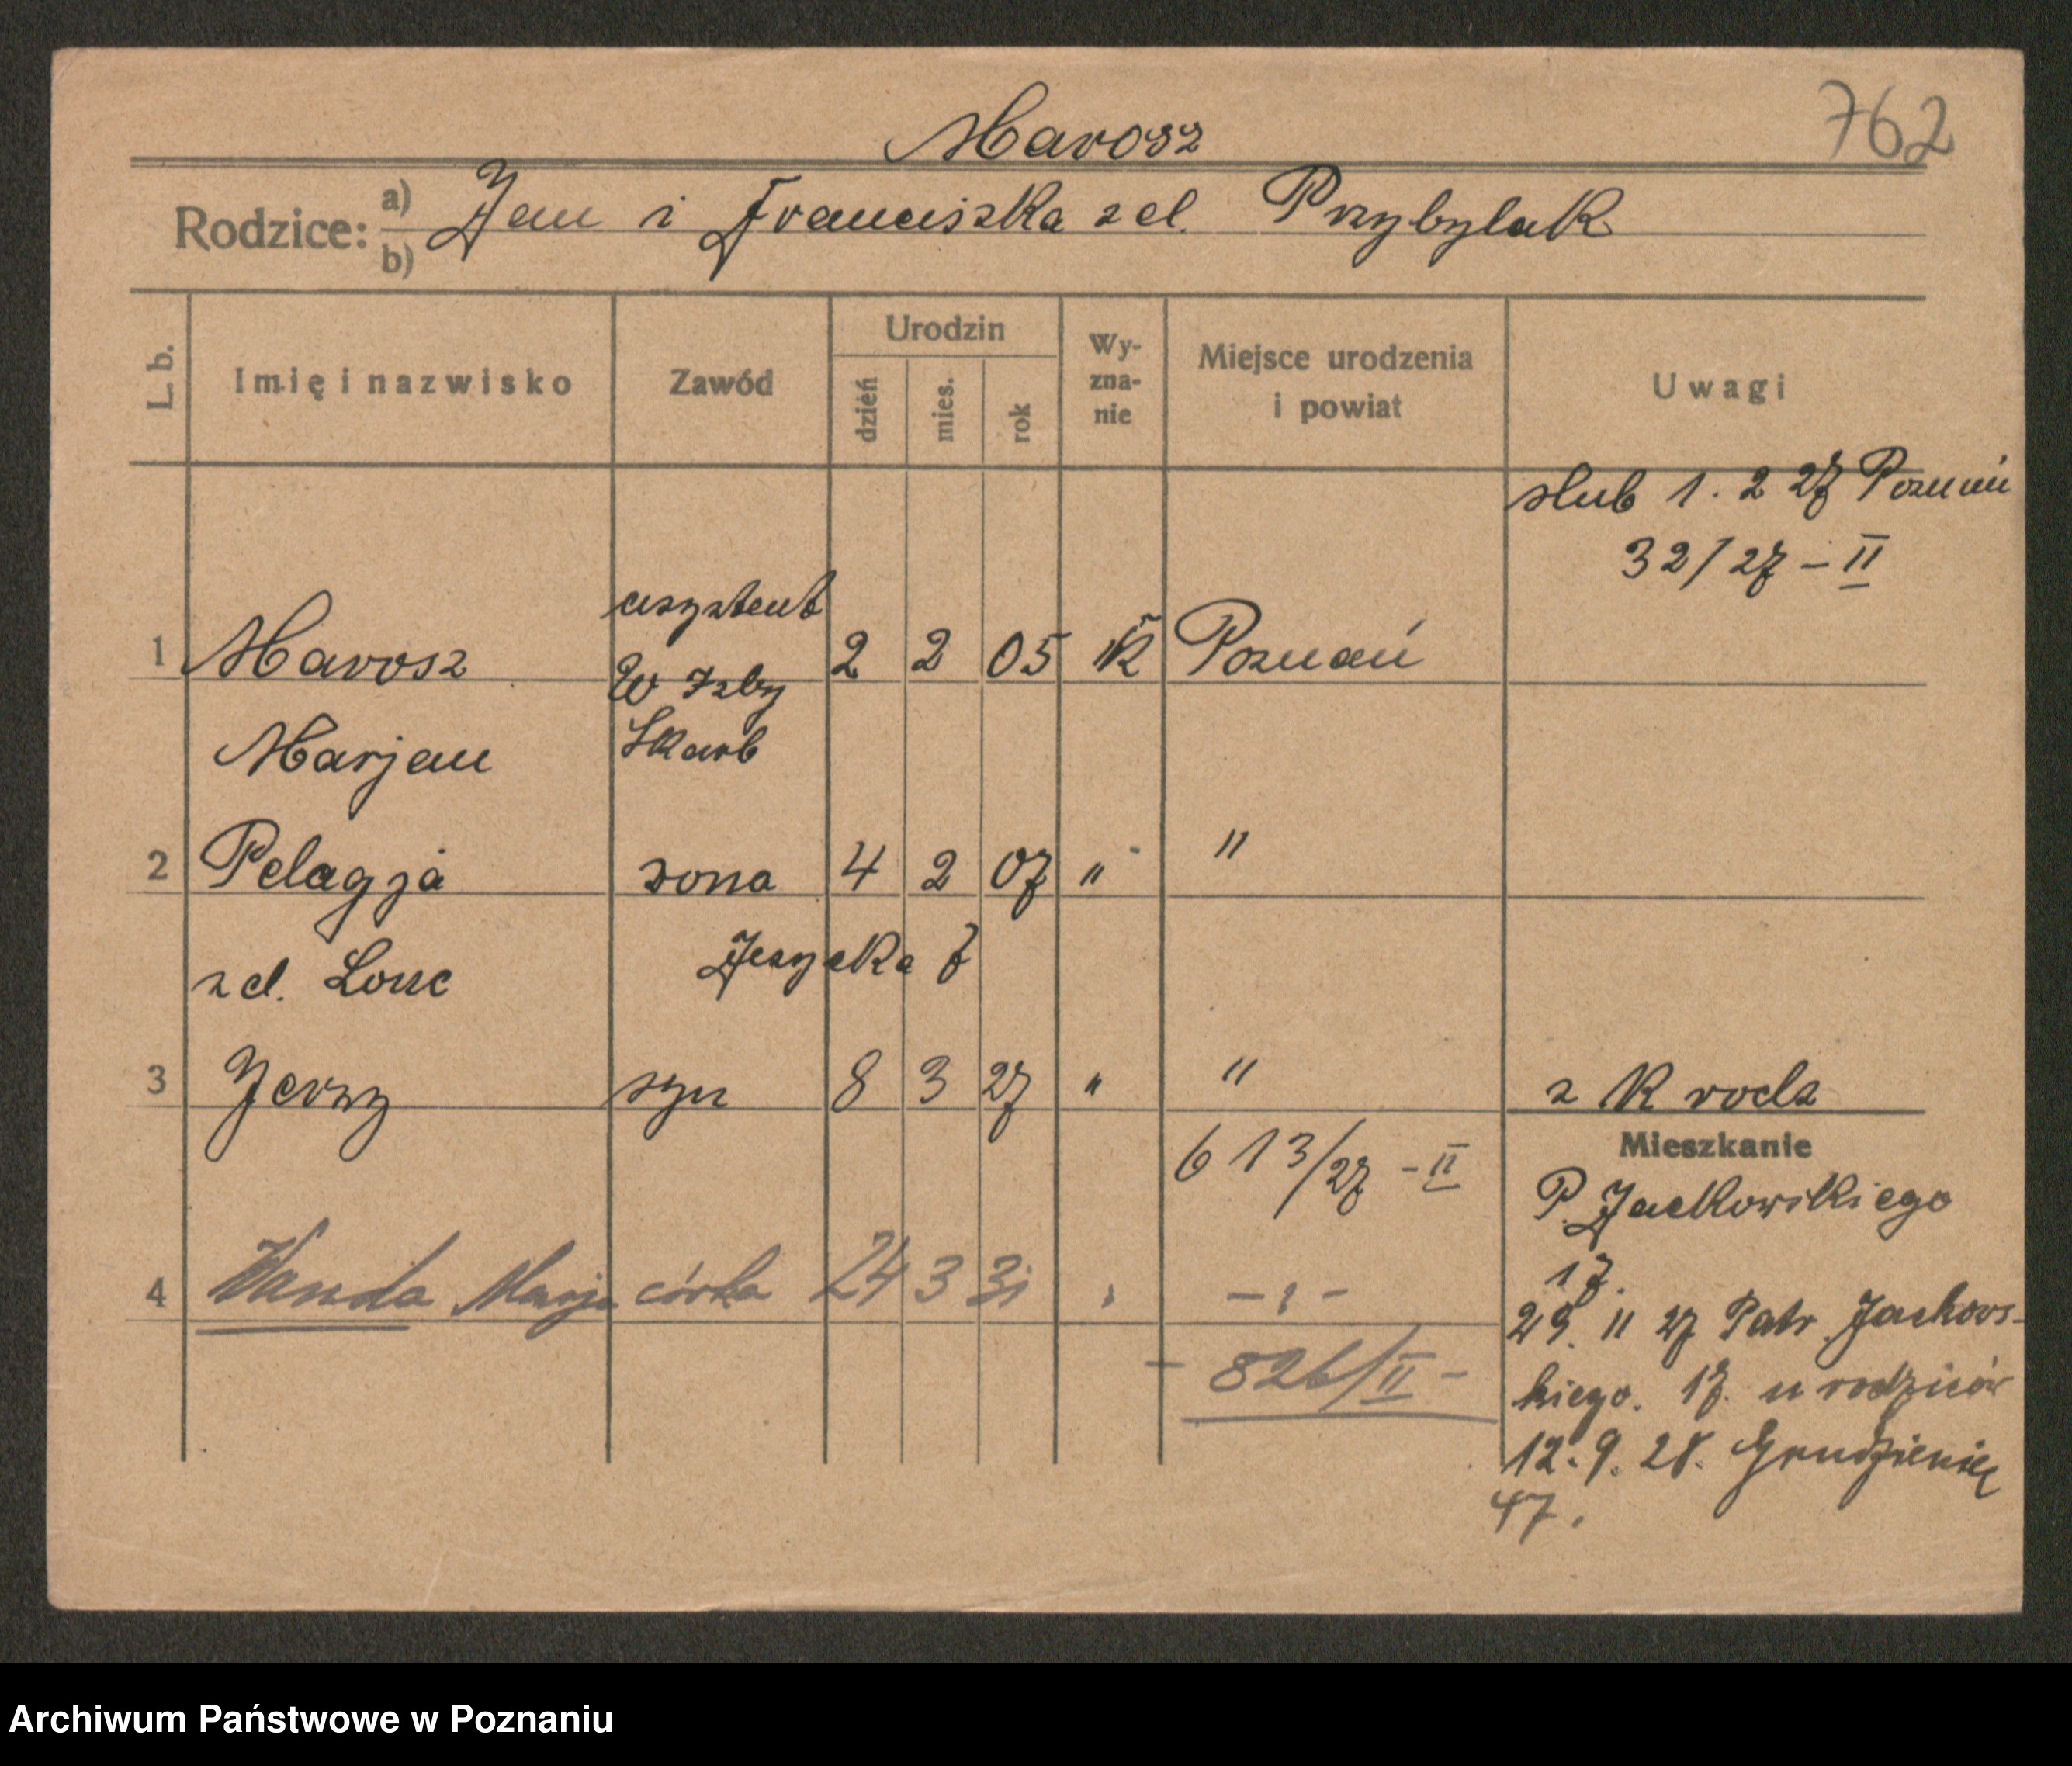 Marosz
762
Rodzice: a) b) Jan i Franciszka z d. Przybylak
L. b.
Imię i nazwisko
Zawód
Urodzin
dzień
mies.
rok
Wy-
zna-
nie
Miejsce urodzenia
i powiat
Uwagi
slub 1. 2 27 Poznań
32/27 - II
asystent
1 Marosz 2 2 05 rk Poznań
W Izby
Marjan Skarb
2 Pelagja zona 4 2 07 " "
z d. Lonc Jezycka 7
3 Jerzy syn 8 3 27 " " z K rodz
613/27 - II
Mieszkanie
P. Jackowskiego
17.
4 Wanda Marja córka 24 3 31 " - " -
29. 11 27 Patr. Jackows-
kiego. 17. u rodziców
- 826/II -
12. 9. 28. Grudzieniec
47.
Archiwum Państwowe w Poznaniu